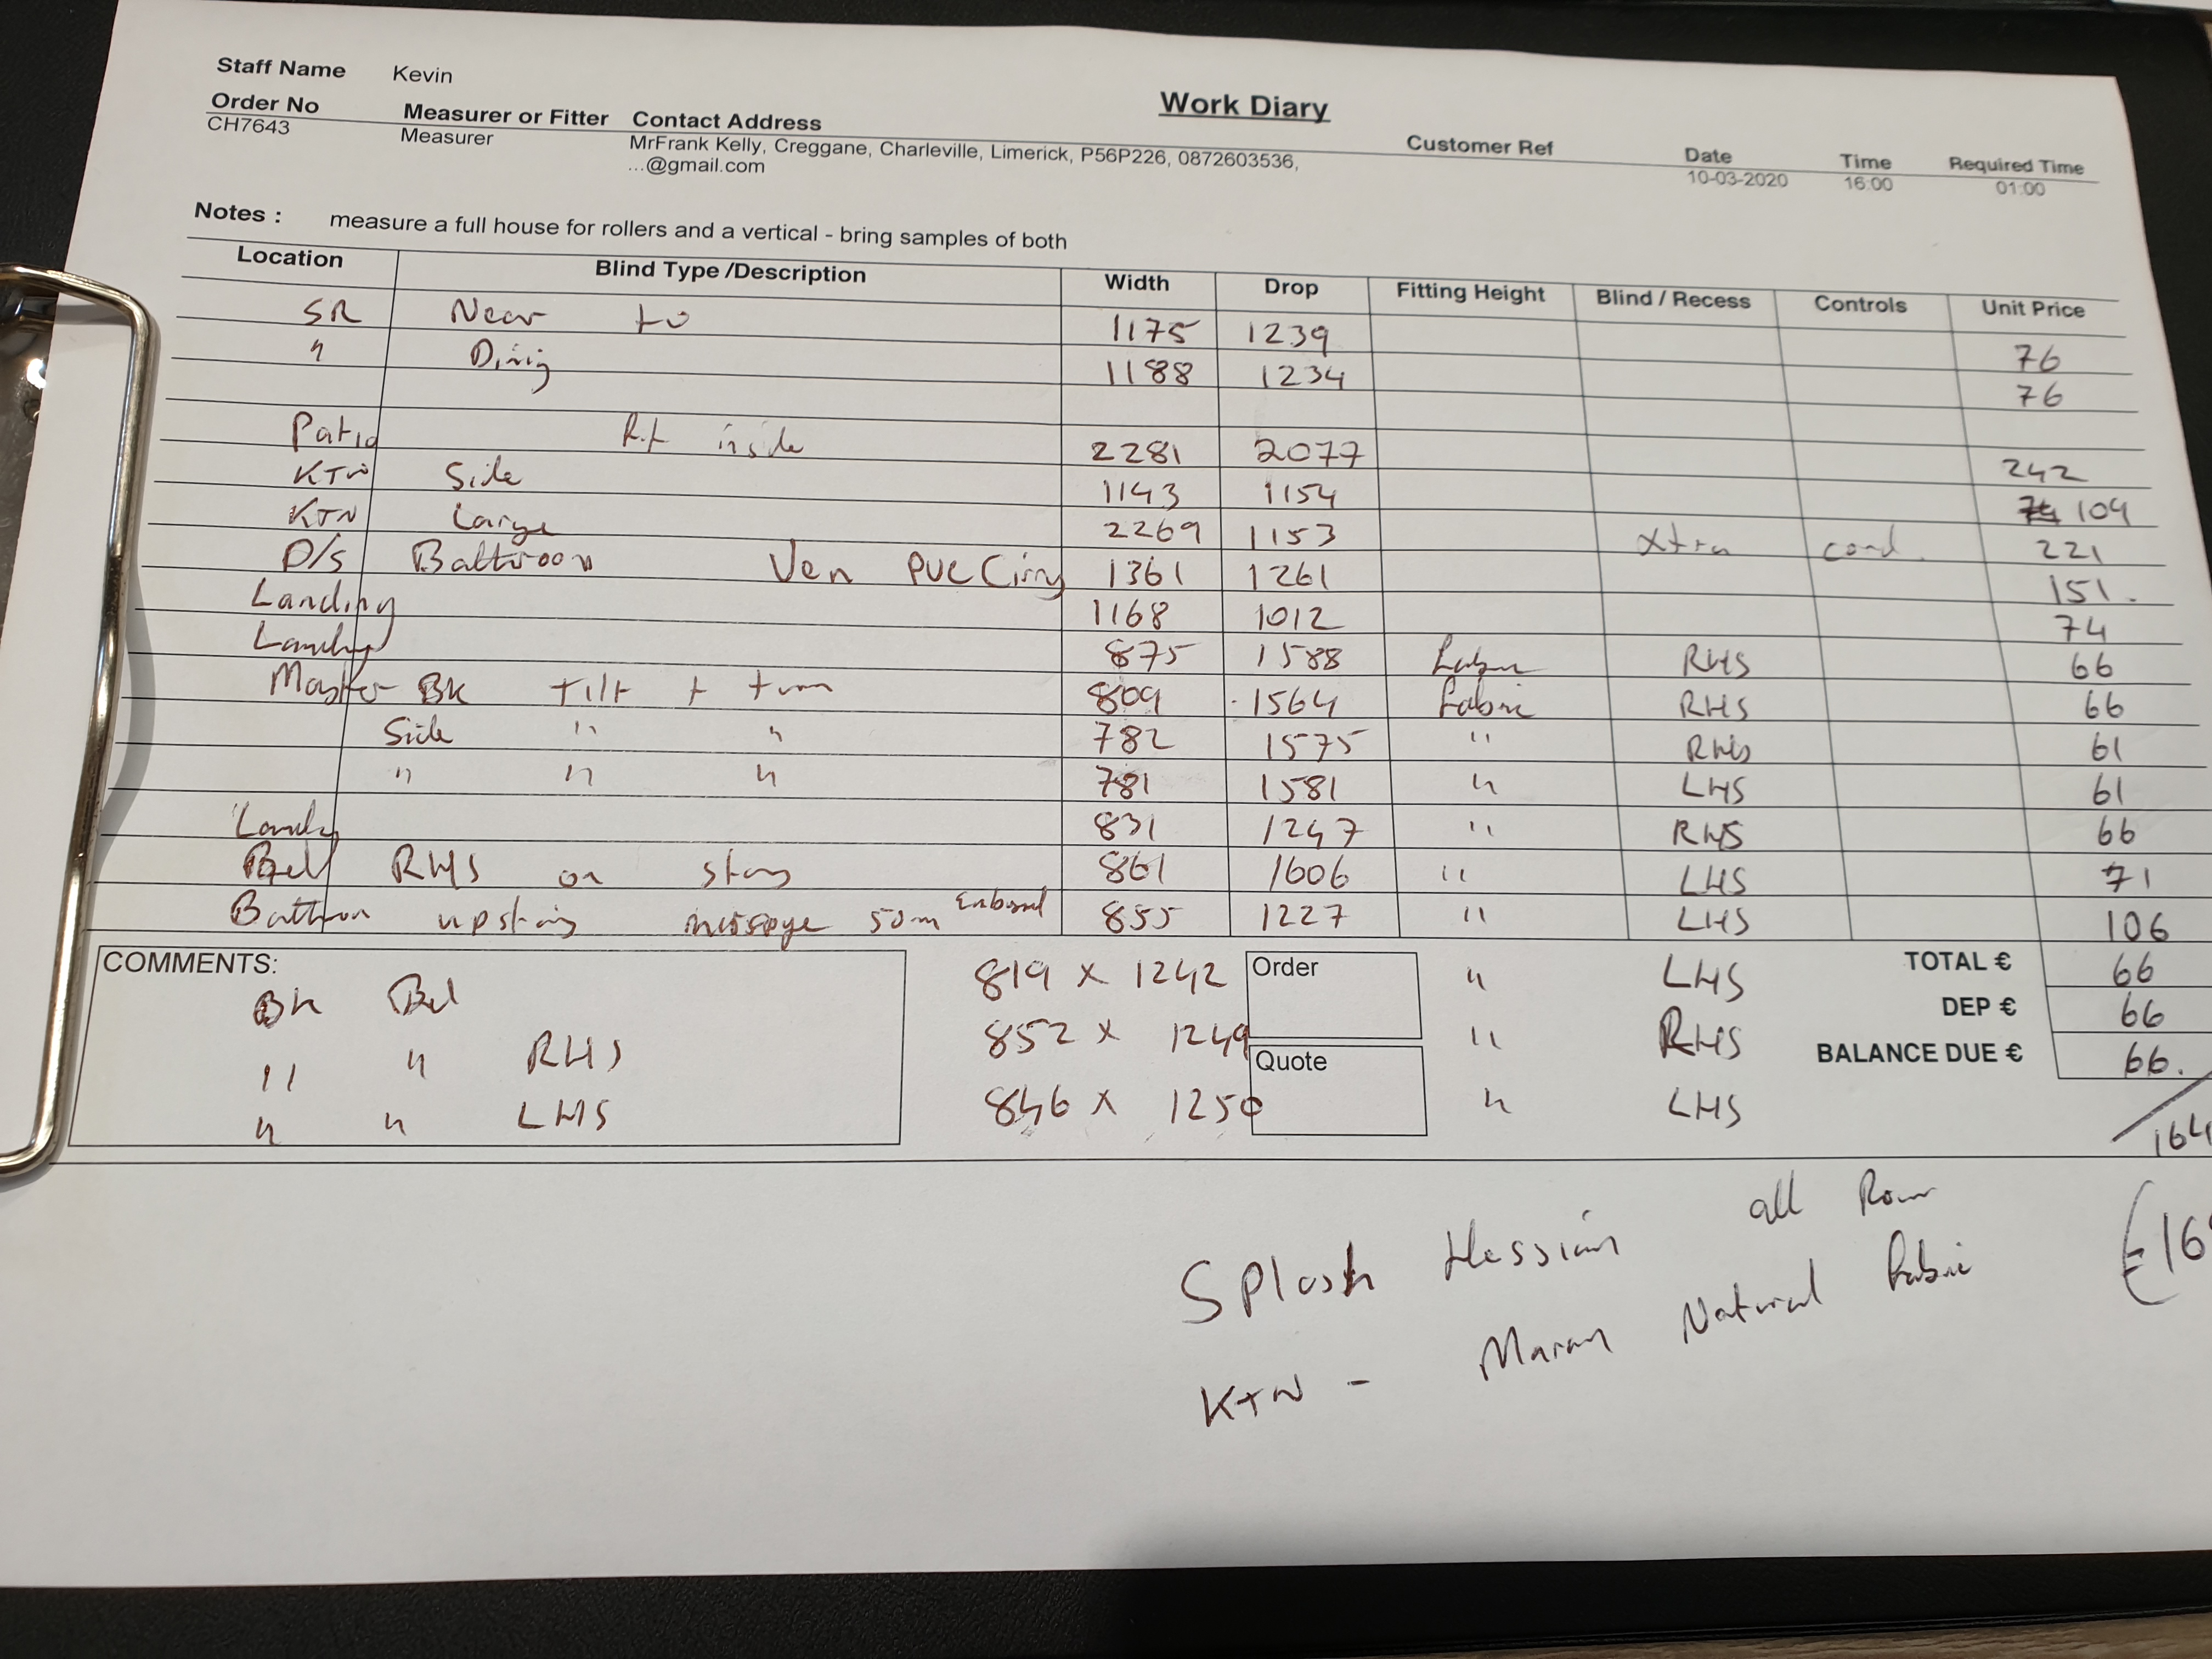 Work Diary
Staff Name Kevin
Order No Measurer or Fitter Contact Address Customer Ref Date Time Required Time
CH7643 Measurer MrFrank Kelly, Creggane, Charleville, Limerick, P56P226, 0872603536, 10-03-2020 16:00 01:00
...@gmail.com
Notes : measure a full house for rollers and a vertical - bring samples of both
Location Blind Type /Description Width Drop Fitting Height Blind / Recess Controls Unit Price
SR Near to 1175 1239 76
" Dining 1188 1234 76
Patio inside 2281 2077 242
KTN Side 1143 1154 109
KTN Large 2269 1153 xtra 221
D/S Bathroom Ven PVC 1361 1261 151.
Landing 1168 1012 74
Landing 875 1588 Fabric RHS 66
Master BK tilt + turn 809 1564 Fabric RHS 66
Side " " 782 1575 " RHS 61
" " " 781 1581 " LHS 61
Landing 831 1247 " RHS 66
Bed RHS on stairs 861 1606 " LHS 71
Bathroom upstairs 855 1227 " LHS 106
COMMENTS:
BK Bed 819 x 1242 Order " LHS TOTAL € 66
" " RHS 852 x 1249 " RHS DEP € 66
" " LHS 846 x 1250 Quote " LHS BALANCE DUE € 66.
Splash Hessian all Room
KTN - Natural Fabric